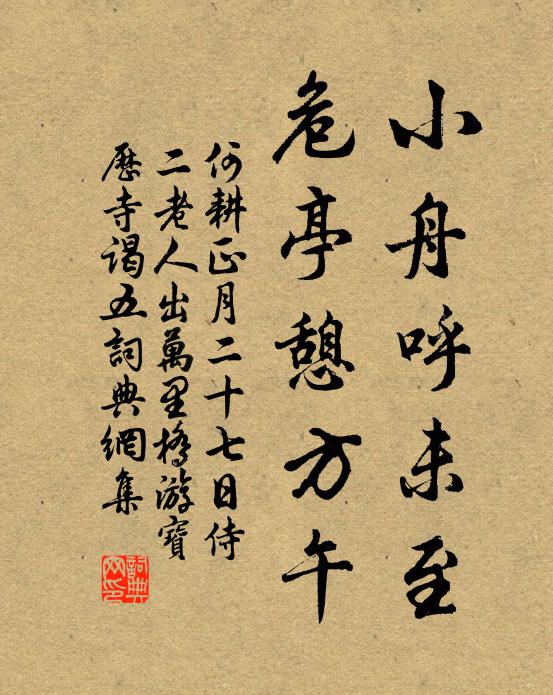 小舟呼未至
危亭憩方午
何耕正月二十七日侍
二老人出萬里橋游寶
歷寺谒五詞典網集
詞典網印